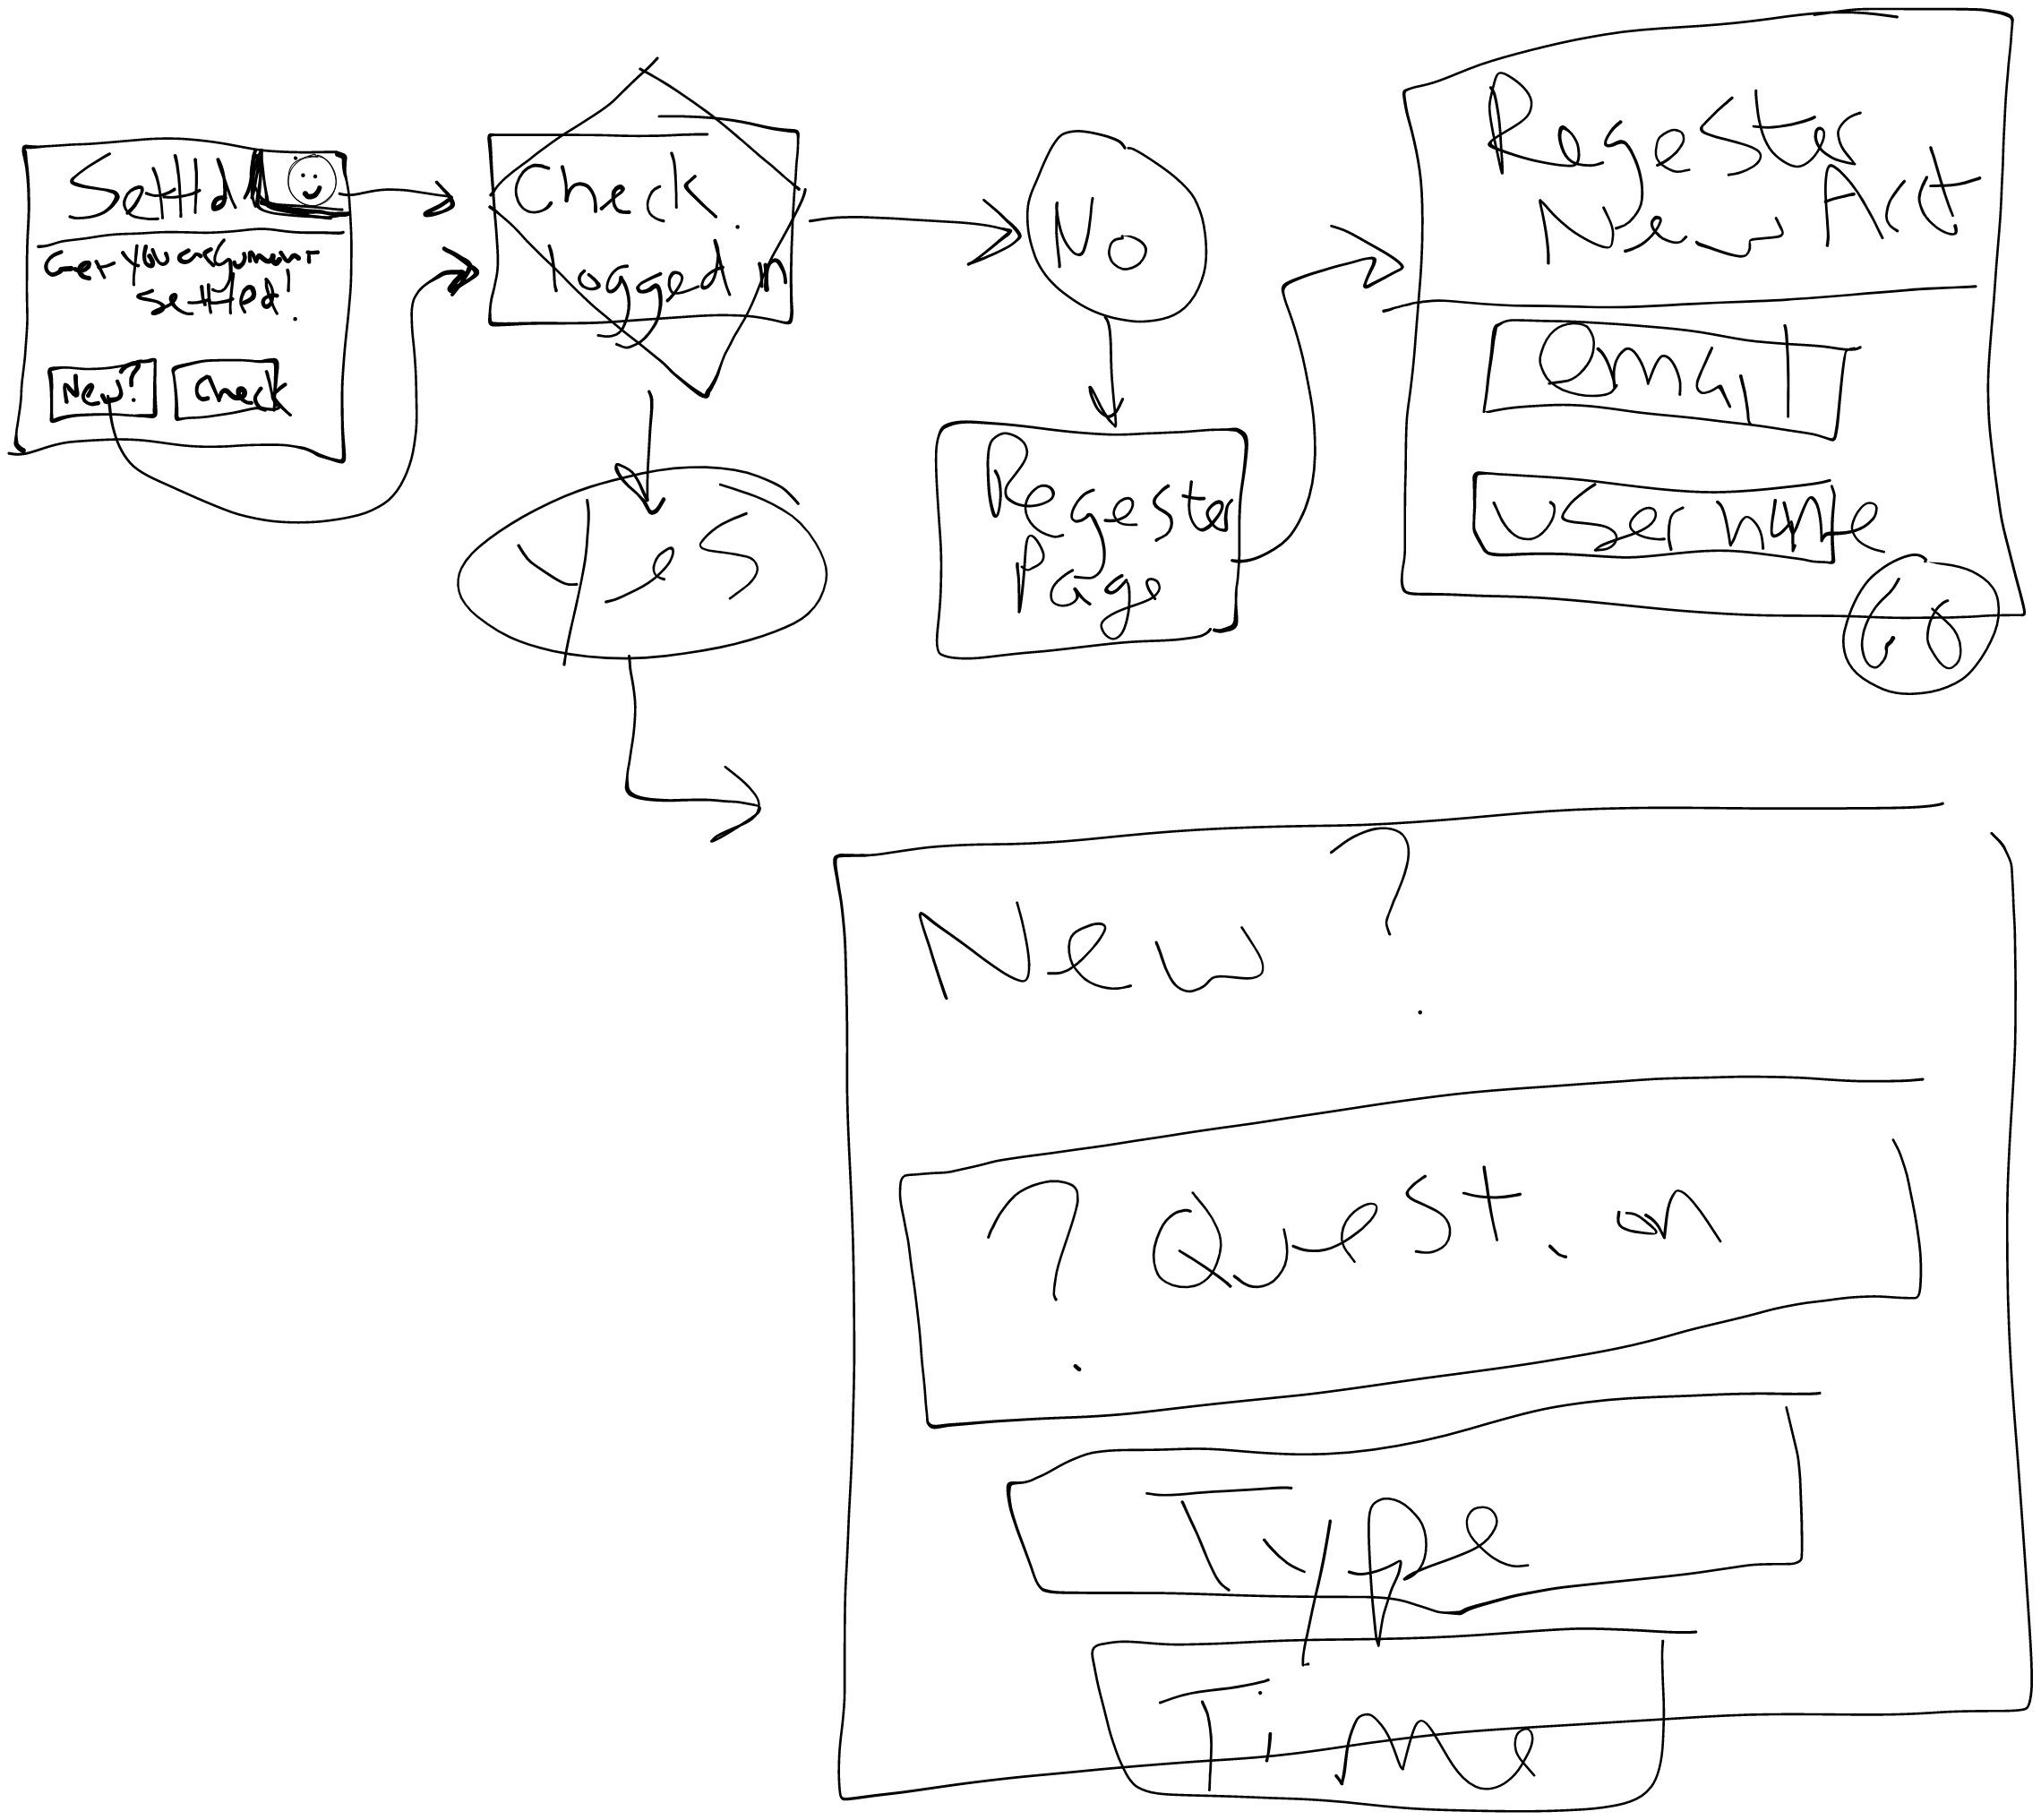 Settld
Get Your argument
settled!
New?
Check
Check
logged In
No
Yes
Regester
Page
Regester
New Act
Email
Username
Go
New?
? Question
Type
Time